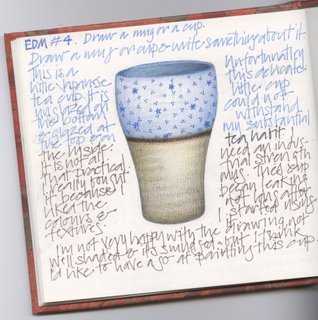 EDM #4. Draw a mug or a cup.
Draw a mug or cup & write something about it.
This is a
little Japanese
tea cup. It is
unglazed on
the bottom
& glazed at
the top and
the inside.
It is not all
that practical.
I really bought
it because I
liked the
colours &
textures.
Unfortunately
this delicate
little cup
could not
withstand
my substantial
tea habit I
need an indus-
trial strength
mug. This cup
began leaking
not long after
I started using
it.
I'm not very happy with the drawing not
well shaded & its smudged - but I think
I'd like to have a go at painting this cup.